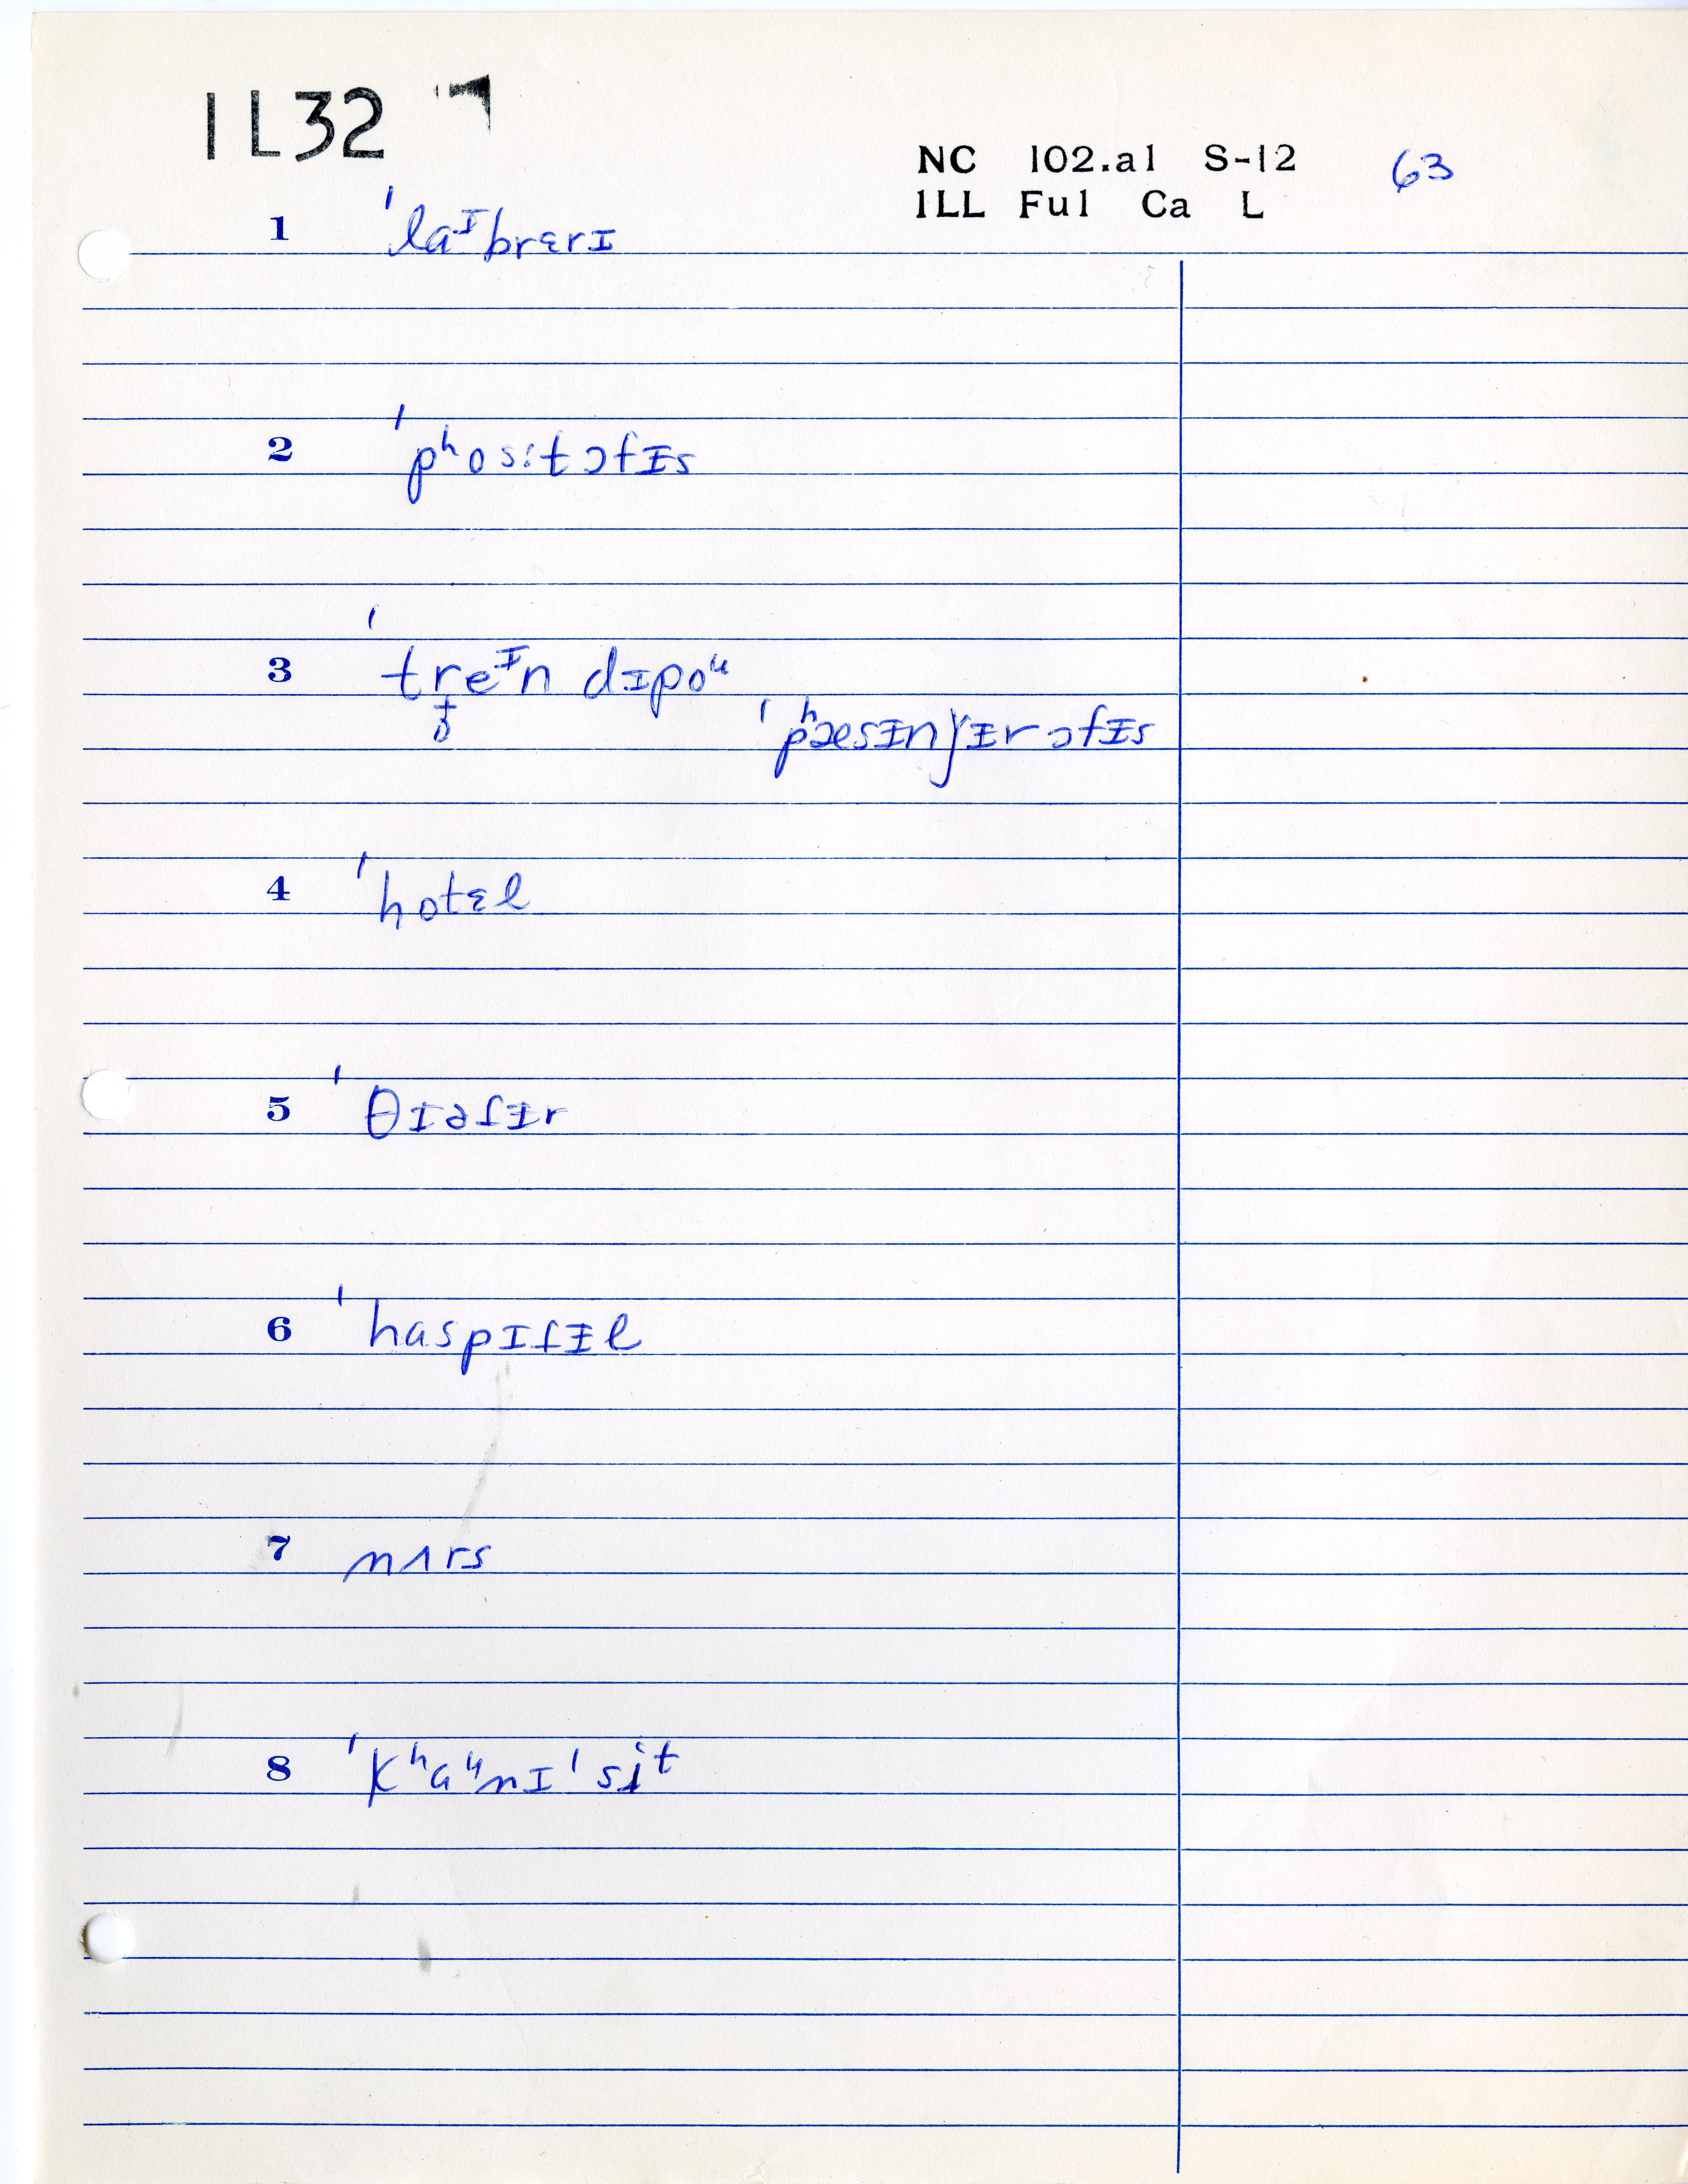 1L32
NC 102.a1 S-12 63
1LL Ful Ca L
1 ˈlaᴵbrɛrɪ
2 ˈpʰosːtɔfɪ̵s
3 ˈtreᴵn dɪpoᵘ
ˈpʰæsɪ̵nɟɪ̵rɔfɪ̵s
4 ˈhotɛl
5 ˈθɪəɾɪ̵r
6 ˈhaspɪɾɪ̵l
7 nʌrs
8 ˈkʰaᵘnɪˈsit